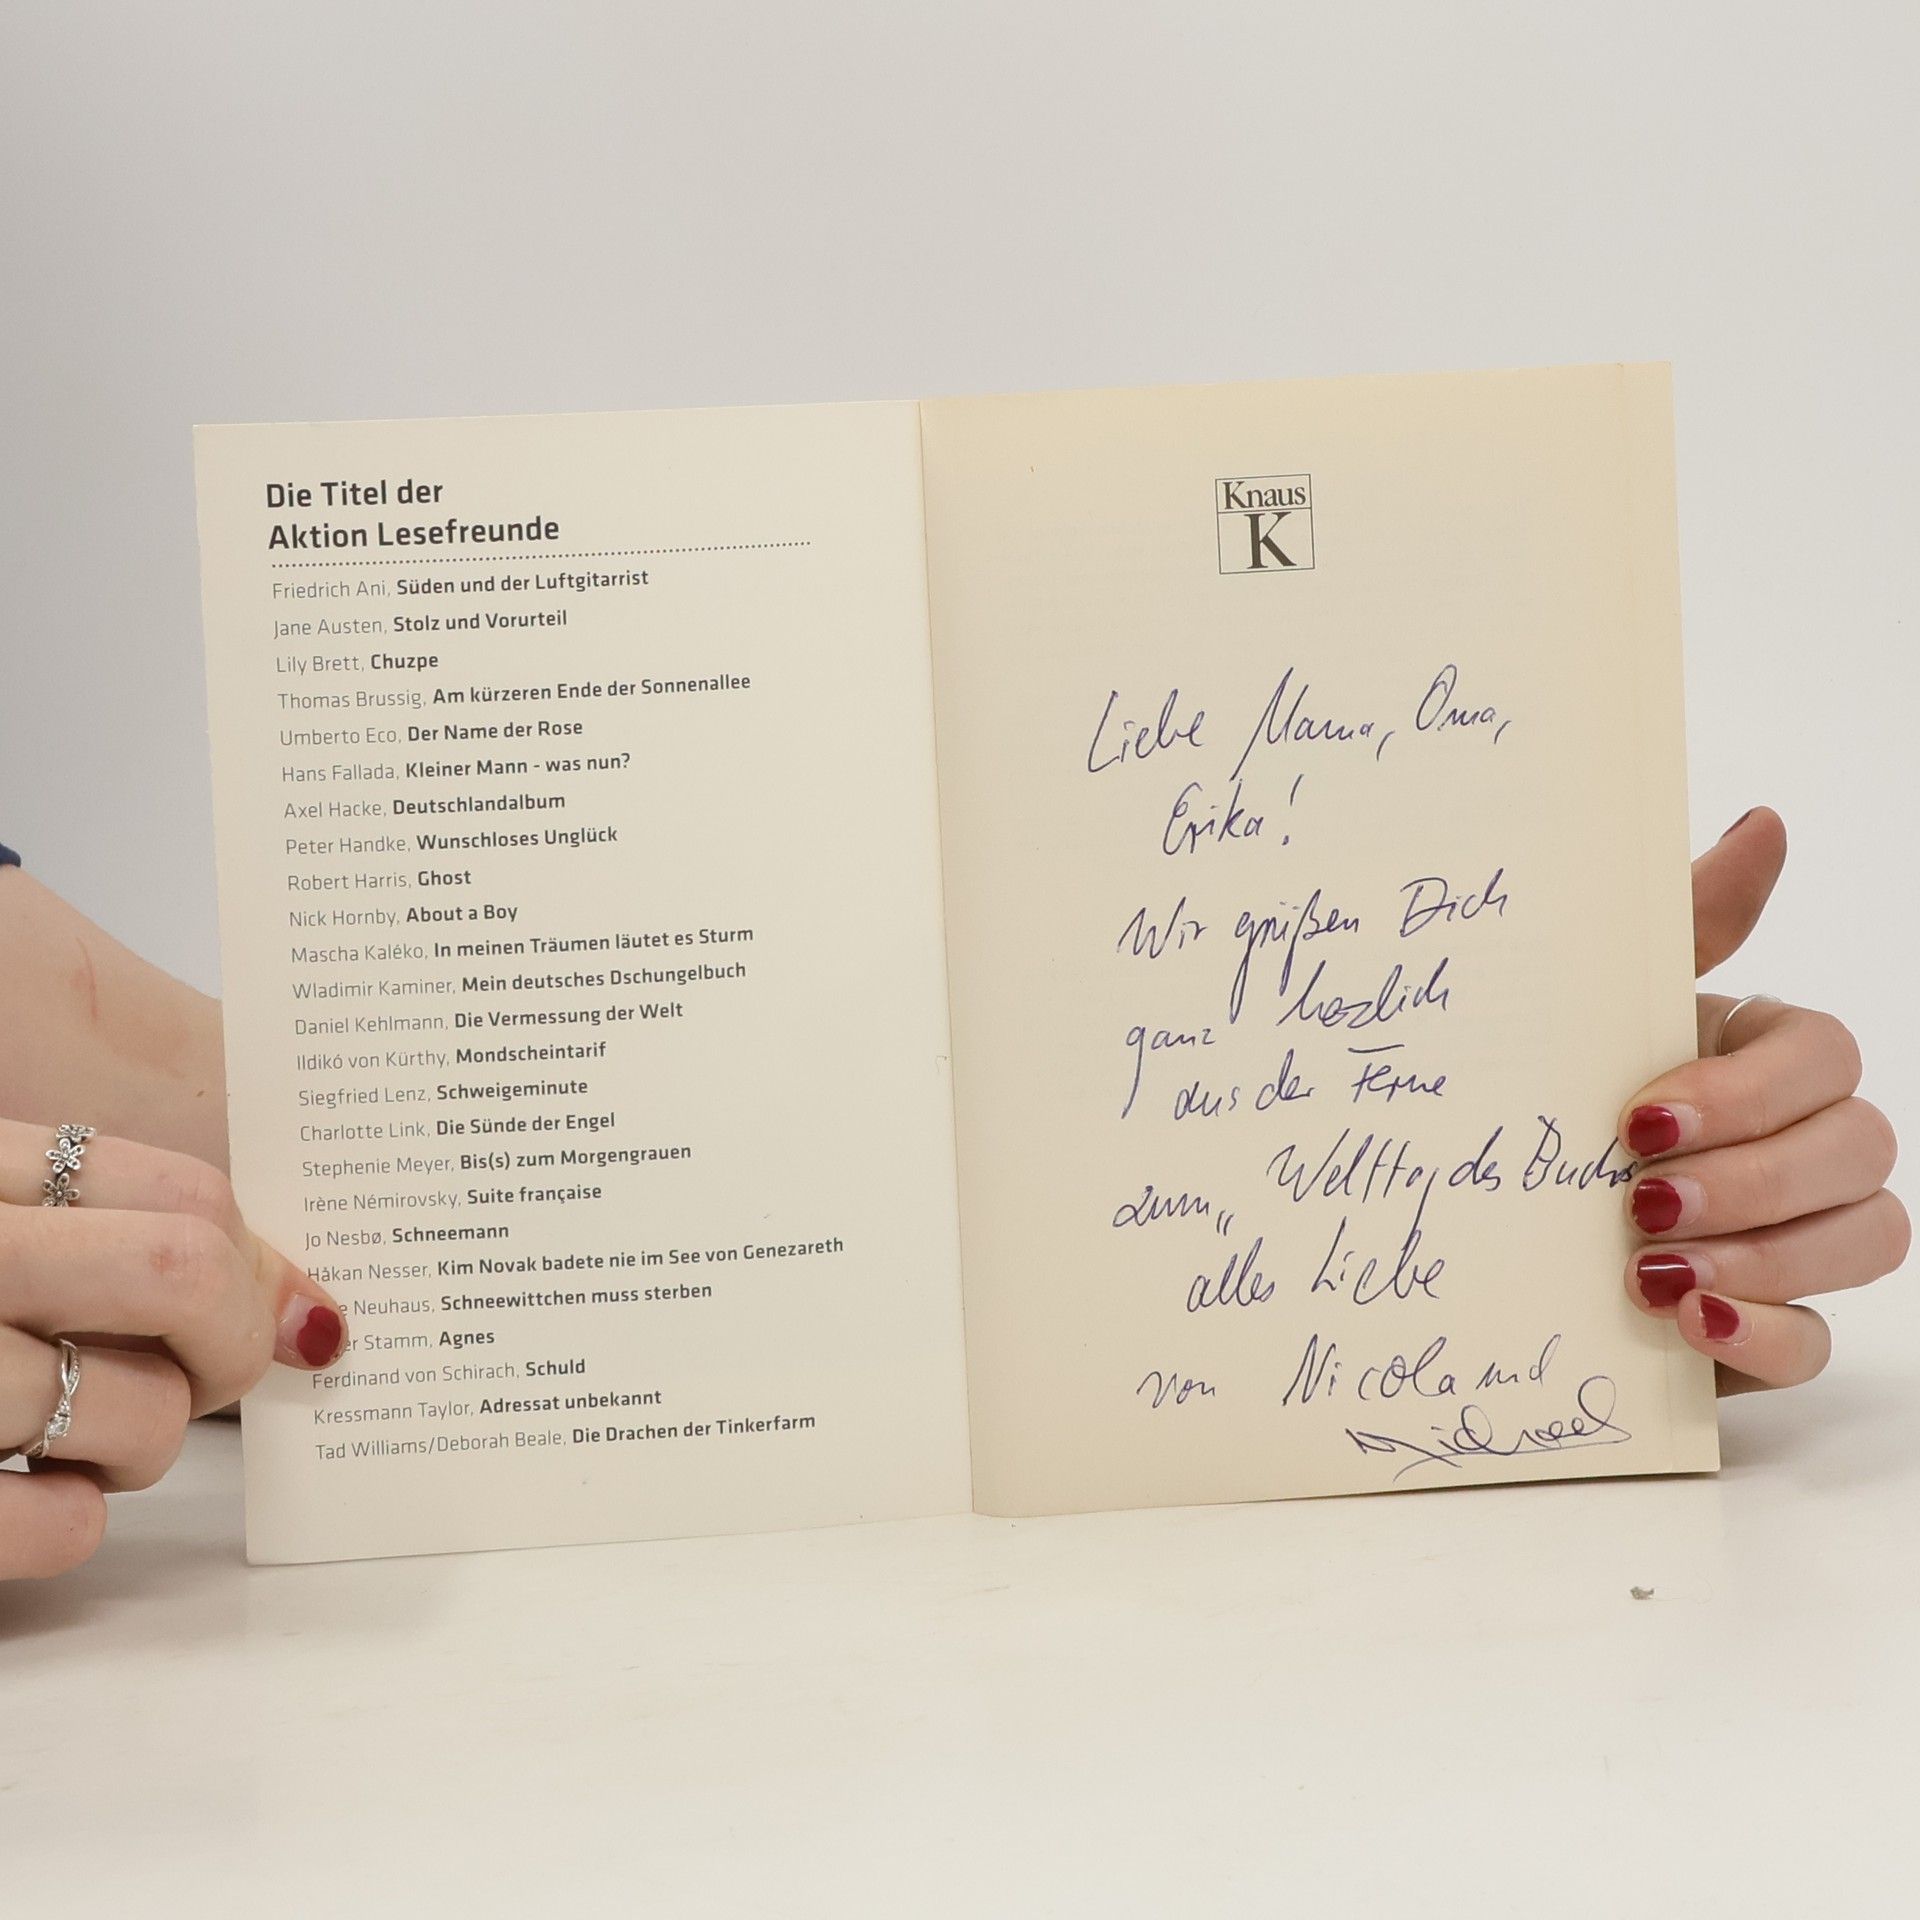 Die Titel der
Aktion Lesefreunde
Friedrich Ani, Süden und der Luftgitarrist
Jane Austen, Stolz und Vorurteil
Lily Brett, Chuzpe
Thomas Brussig, Am kürzeren Ende der Sonnenallee
Umberto Eco, Der Name der Rose
Hans Fallada, Kleiner Mann - was nun?
Axel Hacke, Deutschlandalbum
Peter Handke, Wunschloses Unglück
Robert Harris, Ghost
Nick Hornby, About a Boy
Mascha Kaléko, In meinen Träumen läutet es Sturm
Wladimir Kaminer, Mein deutsches Dschungelbuch
Daniel Kehlmann, Die Vermessung der Welt
Ildikó von Kürthy, Mondscheintarif
Siegfried Lenz, Schweigeminute
Charlotte Link, Die Sünde der Engel
Stephenie Meyer, Bis(s) zum Morgengrauen
Irène Némirovsky, Suite française
Jo Nesbø, Schneemann
Håkan Nesser, Kim Novak badete nie im See von Genezareth
e Neuhaus, Schneewittchen muss sterben
er Stamm, Agnes
Ferdinand von Schirach, Schuld
Kressmann Taylor, Adressat unbekannt
Tad Williams/Deborah Beale, Die Drachen der Tinkerfarm
Knaus
K
Liebe Mama, Oma,
Erika!
Wir grüßen Dich
ganz herzlich
aus der Ferne
zum „Welttag des Buchs
alles Liebe
von Nicola und
Michael